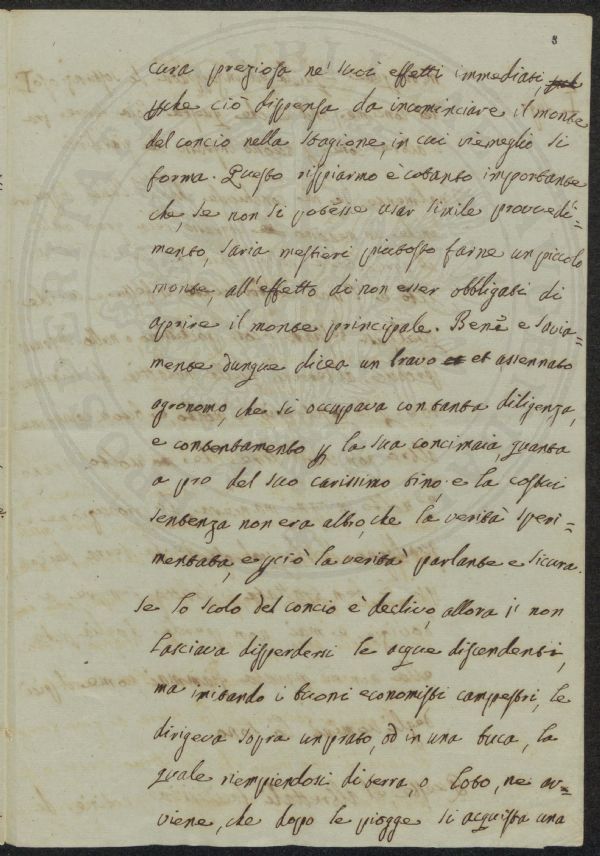 8
cura preziosa ne' suoi effetti immediati,
che ciò dispensa da incominciare il monte
del concio nella stagione, in cui viemeglio si
forma. Questo risparmio è cotanto importante
che, se non si potesse usar simile provvedi=
mento, saria mestieri piuttosto farne un piccolo
monte, all'effetto di non esser obbligati di
aprire il monte principale. Bene e savia=
mente dunque dicea un bravo et assennato
agronomo, che si occupava con tanta diligenza,
e contentamento p la sua concimaia, quanta
a pro del suo carissimo tino: e la costui
sentenza non era altro, che la verità speri=
mentata, e pciò la verità parlante e sicura.
Se lo scolo del concio è declivo, allora ei non
lasciava disperdersi le acque discendenti,
ma imitando i buoni economisti campestri, le
dirigeva sopra un prato, od in una buca, la
quale riempiendosi di terra, o loto, ne av=
viene, che dopo le piogge si acquista una